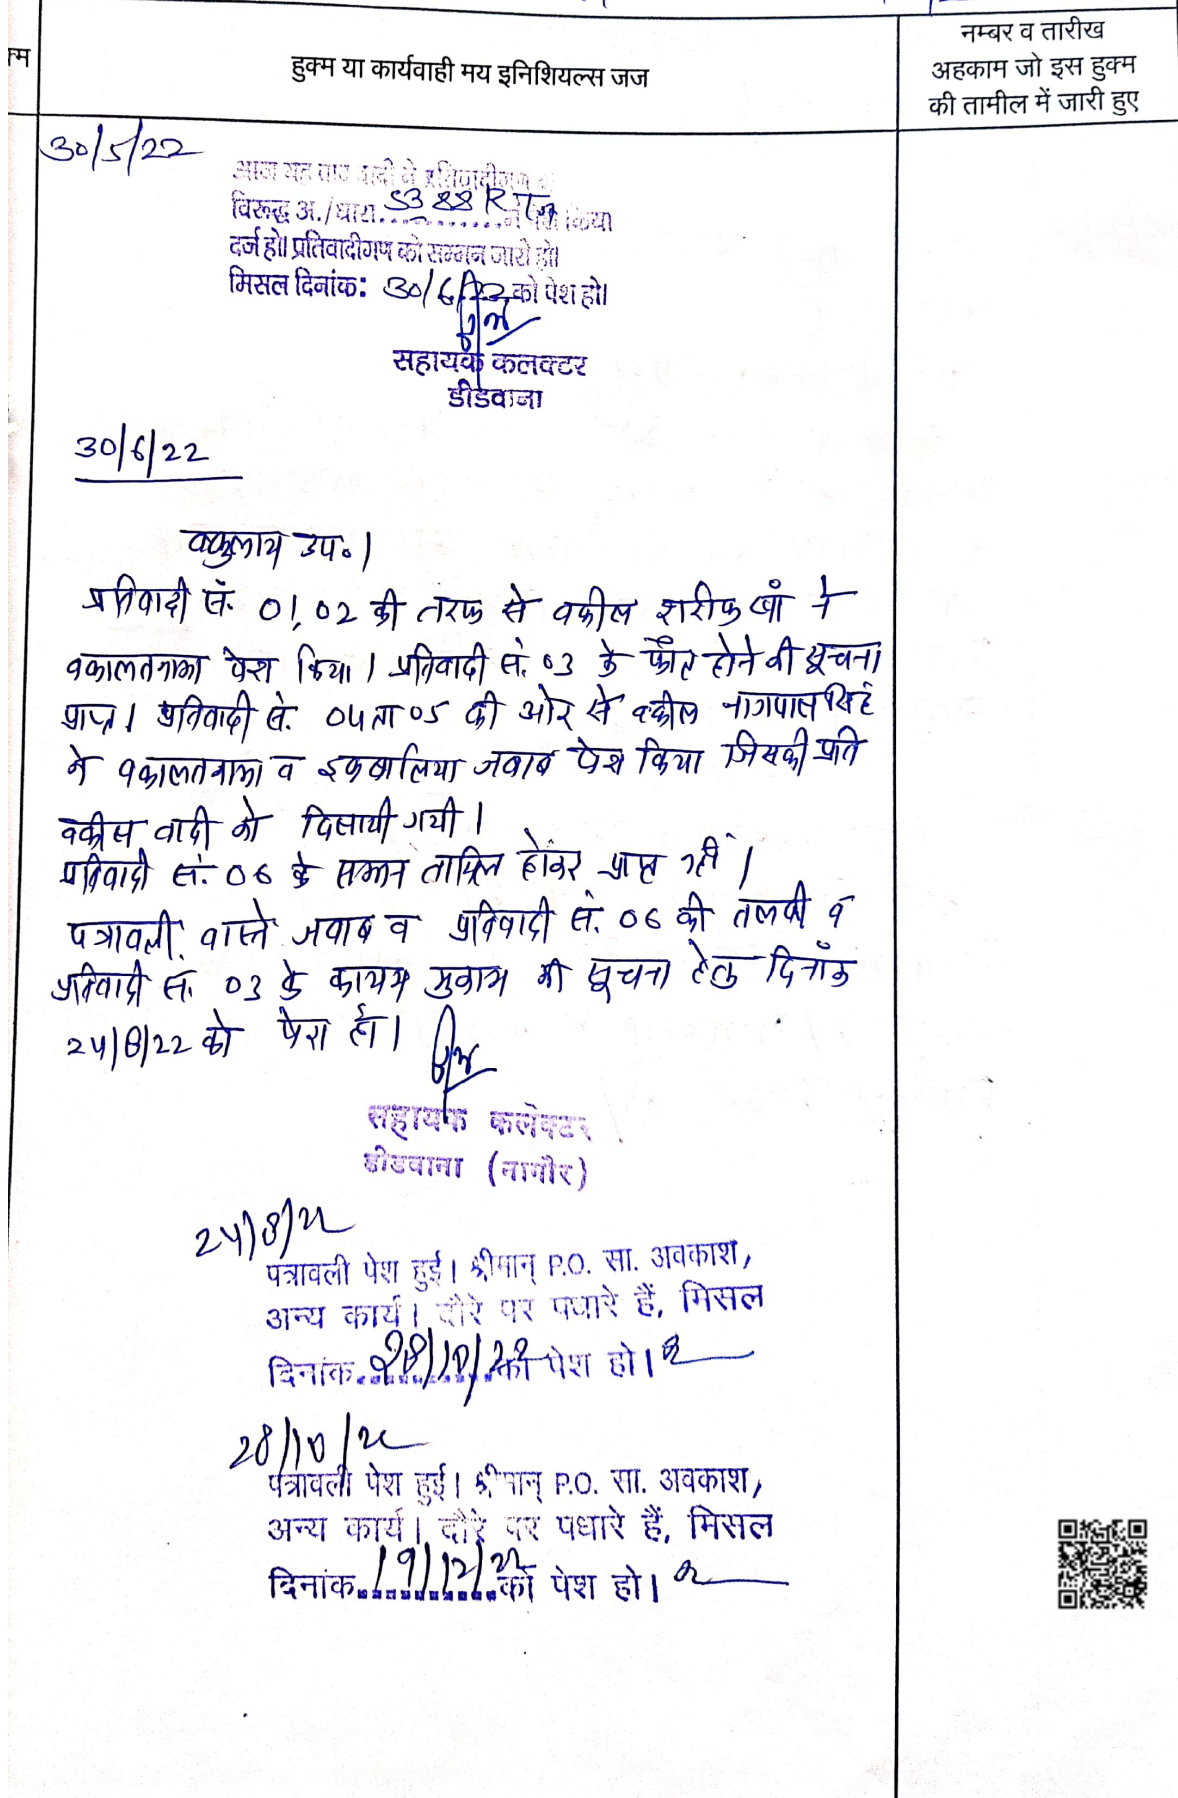 हुक्म या कार्यवाही मय इनिशियल्स जज
नम्बर व तारीख
अहकाम जो इस हुक्म
की तामील में जारी हुए
30/5/22
आज यह वाद वादी ने प्रतिवादीगण के
विरूद्ध अ./धारा 53 88 R T A में पेश किया
दर्ज हो। प्रतिवादीगण को सम्मन जारी हो।
मिसल दिनांक: 30/6/22 को पेश हो।
सहायक कलक्टर
डीडवाना
30/6/22
वकुलाय उप०।
प्रतिवादी सं. 01, 02 की तरफ से वकील शरीफ खां ने
वकालतनामा पेश किया। प्रतिवादी सं. 03 के फौत होने की सूचना
प्राप्त। प्रतिवादी सं. 04 ता 05 की ओर से वकील नागपाल सिंह
ने वकालतनामा व इकबालिया जवाब पेश किया जिसकी प्रति
वकील वादी को दिलायी गयी।
प्रतिवादी सं. 06 के सम्मन तामिल होकर प्राप्त नहीं।
पत्रावली वास्ते जवाब व प्रतिवादी सं. 06 की तलबी व
प्रतिवादी सं. 03 के कायम मुकाम की सूचना हेतु दिनाँक
24/8/22 को पेश हो।
सहायक कलेक्टर
डीडवाना (नागौर)
24/8/22
पत्रावली पेश हुई। श्रीमान् P.O. सा. अवकाश,
अन्य कार्य। दौरे पर पधारे हैं, मिसल
दिनांक 28/10/22 को पेश हो।
28/10/22
पत्रावली पेश हुई। श्रीमान् P.O. सा. अवकाश,
अन्य कार्य। दौरे पर पधारे हैं, मिसल
दिनांक 19/12/22 को पेश हो।